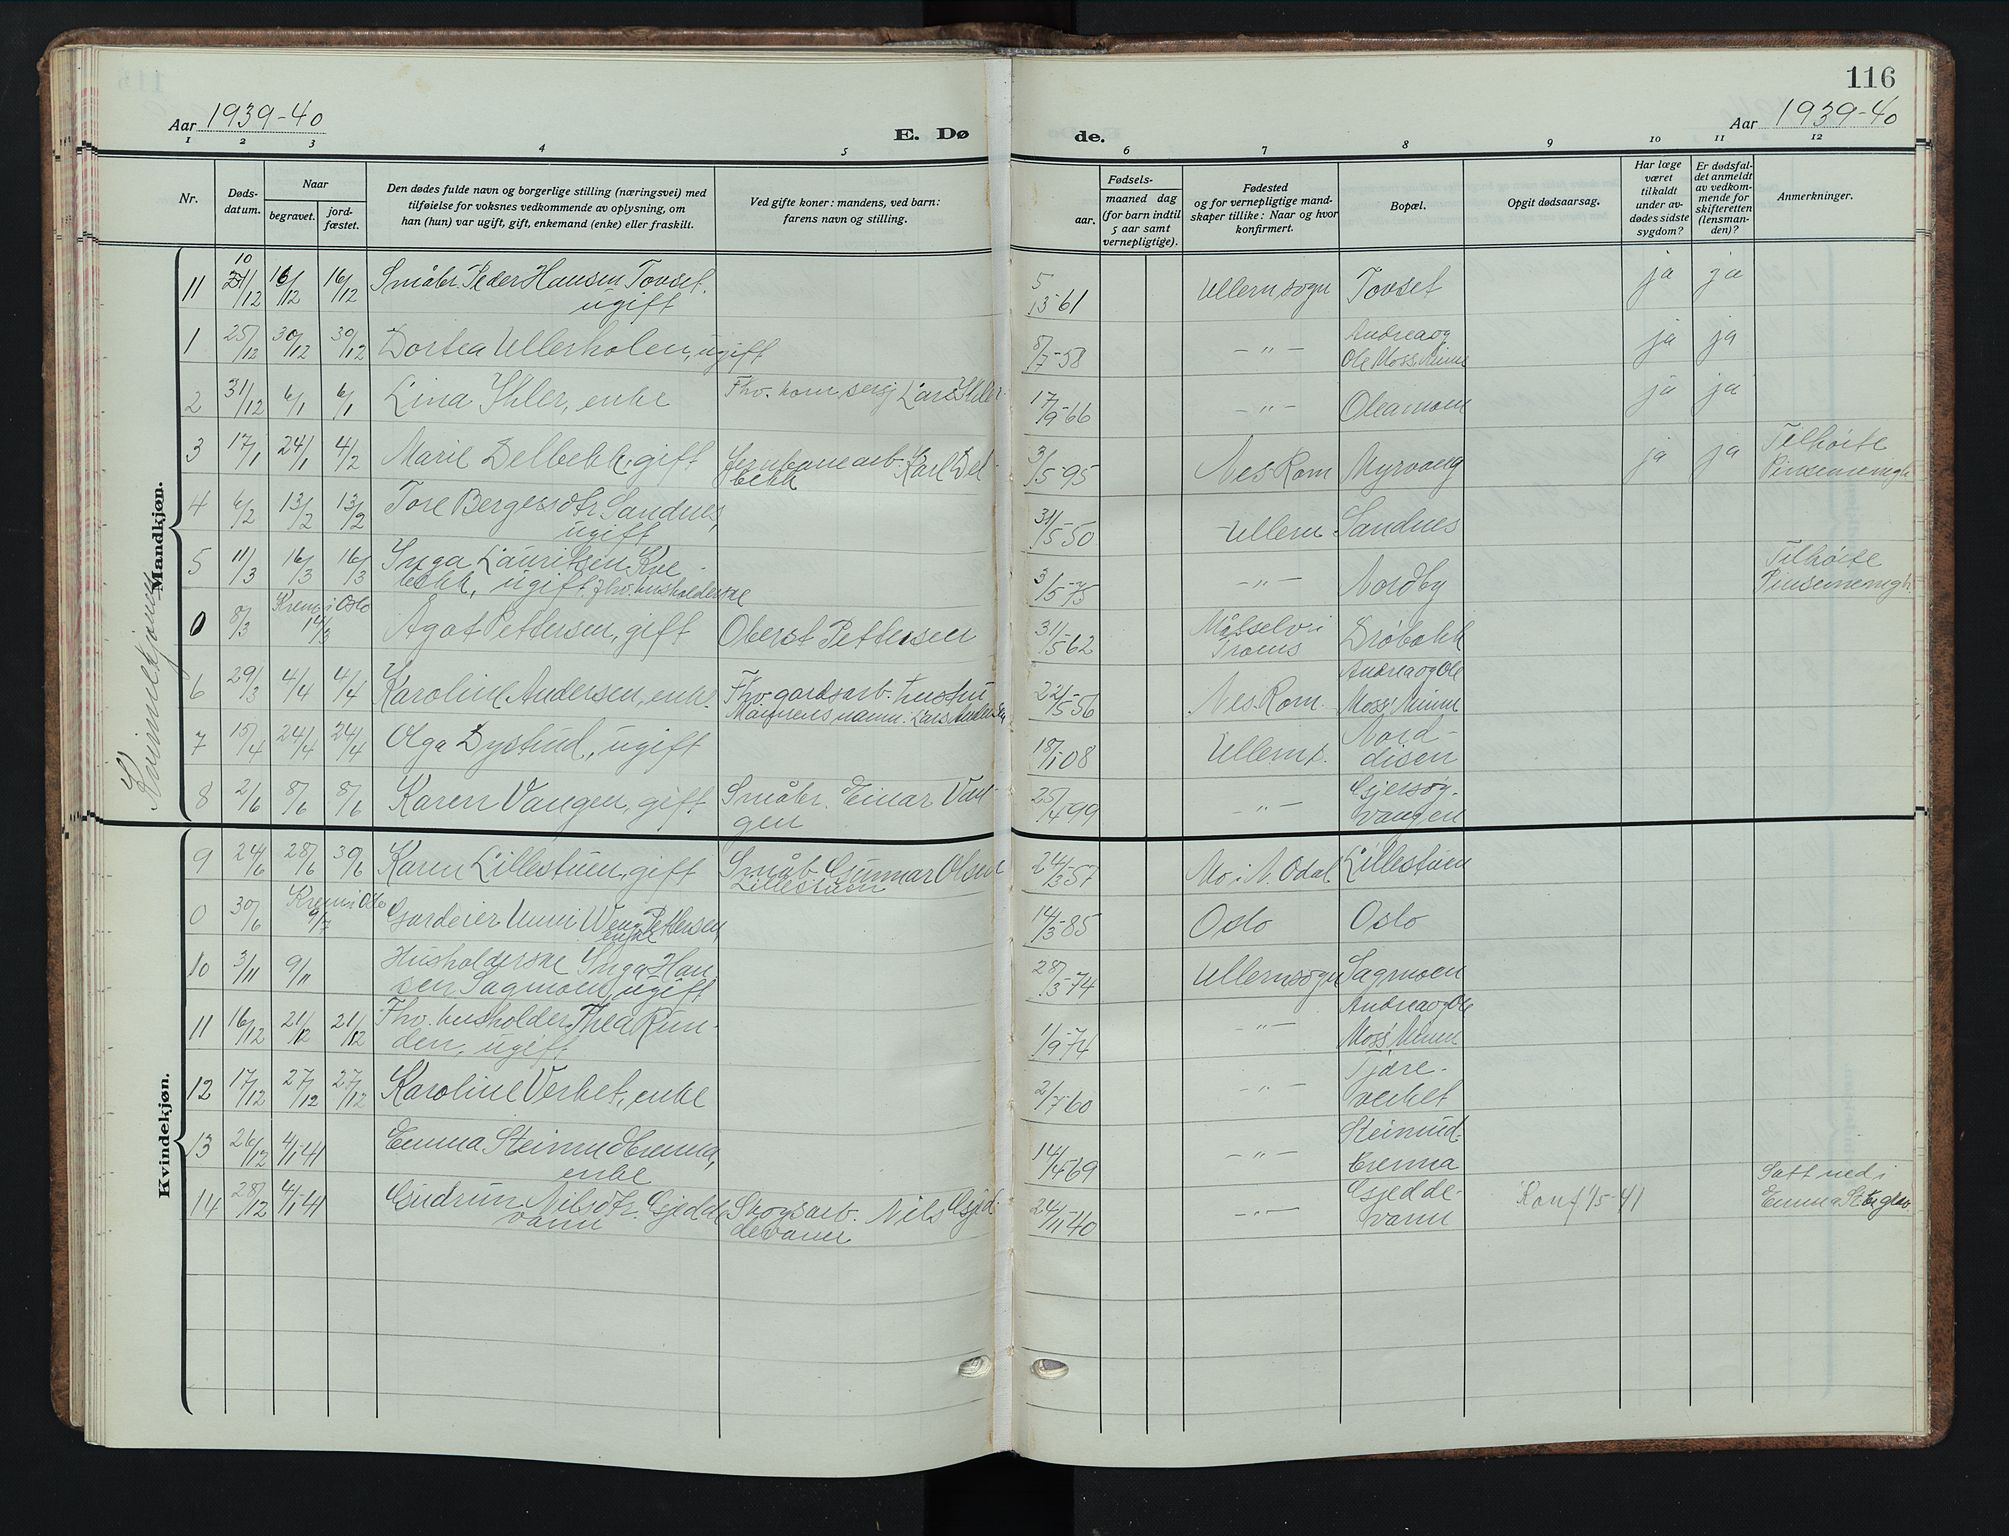 116
Aar 1939-40
E. Dø
de.
Aar 1939-40
1 2 3 4 5 6 7 8 9 10 11 12
Nr.
Døds-
datum.
Naar
begravet.
jord-
fæstet.
Den dødes fulde navn og borgerlige stilling (næringsvei) med
tilføielse for voksnes vedkommende av oplysning, om
han (hun) var ugift, gift, enkemand (enke) eller fraskilt.
Ved gifte koner: mandens, ved barn:
farens navn og stilling.
Fødsels-
aar. maaned dag
(for barn indtil
5 aar samt
vernepligtige).
Fødested
og for vernepligtige mand-
skaper tillike: Naar og hvor
konfirmert.
Bopæl.
Opgit dødsaarsag.
Har læge
været
tilkaldt
under av-
dødes sidste
sygdom?
Er dødsfal-
det anmeldt
av vedkom-
mende for
skifteretten
(lensman-
den)?
Anmerkninger.
Mandkjøn.
Kvinnekjønn
11 10/12 16/12 16/12 Småbr. Peder Hansen Tovset, 5/5-61 Ullern sogn Tovset ja ja
ugift
1 25/12 30/12 30/12 Dortea Ullerholen, ugift 8/7-58 - " - Andrea og
Ole Moss' Minne ja ja
2 31/12 6/1 6/1 Lina Ihler, enke Fhv. kom. sersj Lars Ihler 17/9-66 - " - Oleamoen ja ja
3 17/1 24/1 4/2 Marie Delbekk, gift Jernbanearb. Karl Del-
bekk 3/5-95 Nes Rom Myrvang ja ja Tilhøite
Pinsemenigh
4 6/2 13/2 13/2 Tore Bergersdtr. Sandnes,
ugift 31/5-50 Ullern Sandnes
5 11/3 16/3 16/3 Inga Lauritsen Kve-
bekk, ugift, fhv. husholderske 3/5-75 - " - Nordby Tilhøite
Pinsemenigh.
0 8/3 Krem. i Oslo
14/3 Agot Pettersen, gift Oberst Pettersen 31/5-62 Målselv i
Troms Drøbakk
6 29/3 4/4 4/4 Karoline Andersen, enke Fhv. gardsarb. hustru
Mannens navn: Lars Andersen 22/5-56 Nes Rom. Andrea og Ole
Moss' Minne
7 15/4 24/4 24/4 Olga Dystrud, ugift 18/1-08 Ullern s. Nord-
disen
8 2/6 8/6 8/6 Karen Vangen, gift Småbr. Einar Van-
gen 25/4-99 - " - Gjersøy-
vangen
Kvindekjøn.
9 24/6 28/6 30/6 Karen Lillestuen, gift Småb. Gunnar Olsen
Lillestuen 24/3-57 Mo i N. Odal Lillestuen
0 30/6 Krem i Oslo
9/7 Gardeier Unni Wenn Pettersen,
enke 14/3-85 Oslo Oslo
10 3/11 9/11 Husholderske Inga Han-
sen Sagmoen, ugift 28/3-74 Ullern sogn Sagmoen
11 16/12 21/12 21/12 Fhv. husholder. Thea Run-
den, ugift 1/9-74 - " - Andrea og Ole
Moss' Minne
12 17/12 27/12 27/12 Karoline Verket, enke 2/7-60 - " - Tjære-
verket
13 26/12 4/1-41 Emma Steinudbrenna,
enke 14/4-69 - " - Steinud-
brenna
14 28/12 4/1-41 Gudrun Nilsdtr. Gjedde-
vann Skogsarb. Nils Gjed-
devann 24/11-40 - " - Gjedde-
vann Konf 15-41 Satt ned i
Emma St.